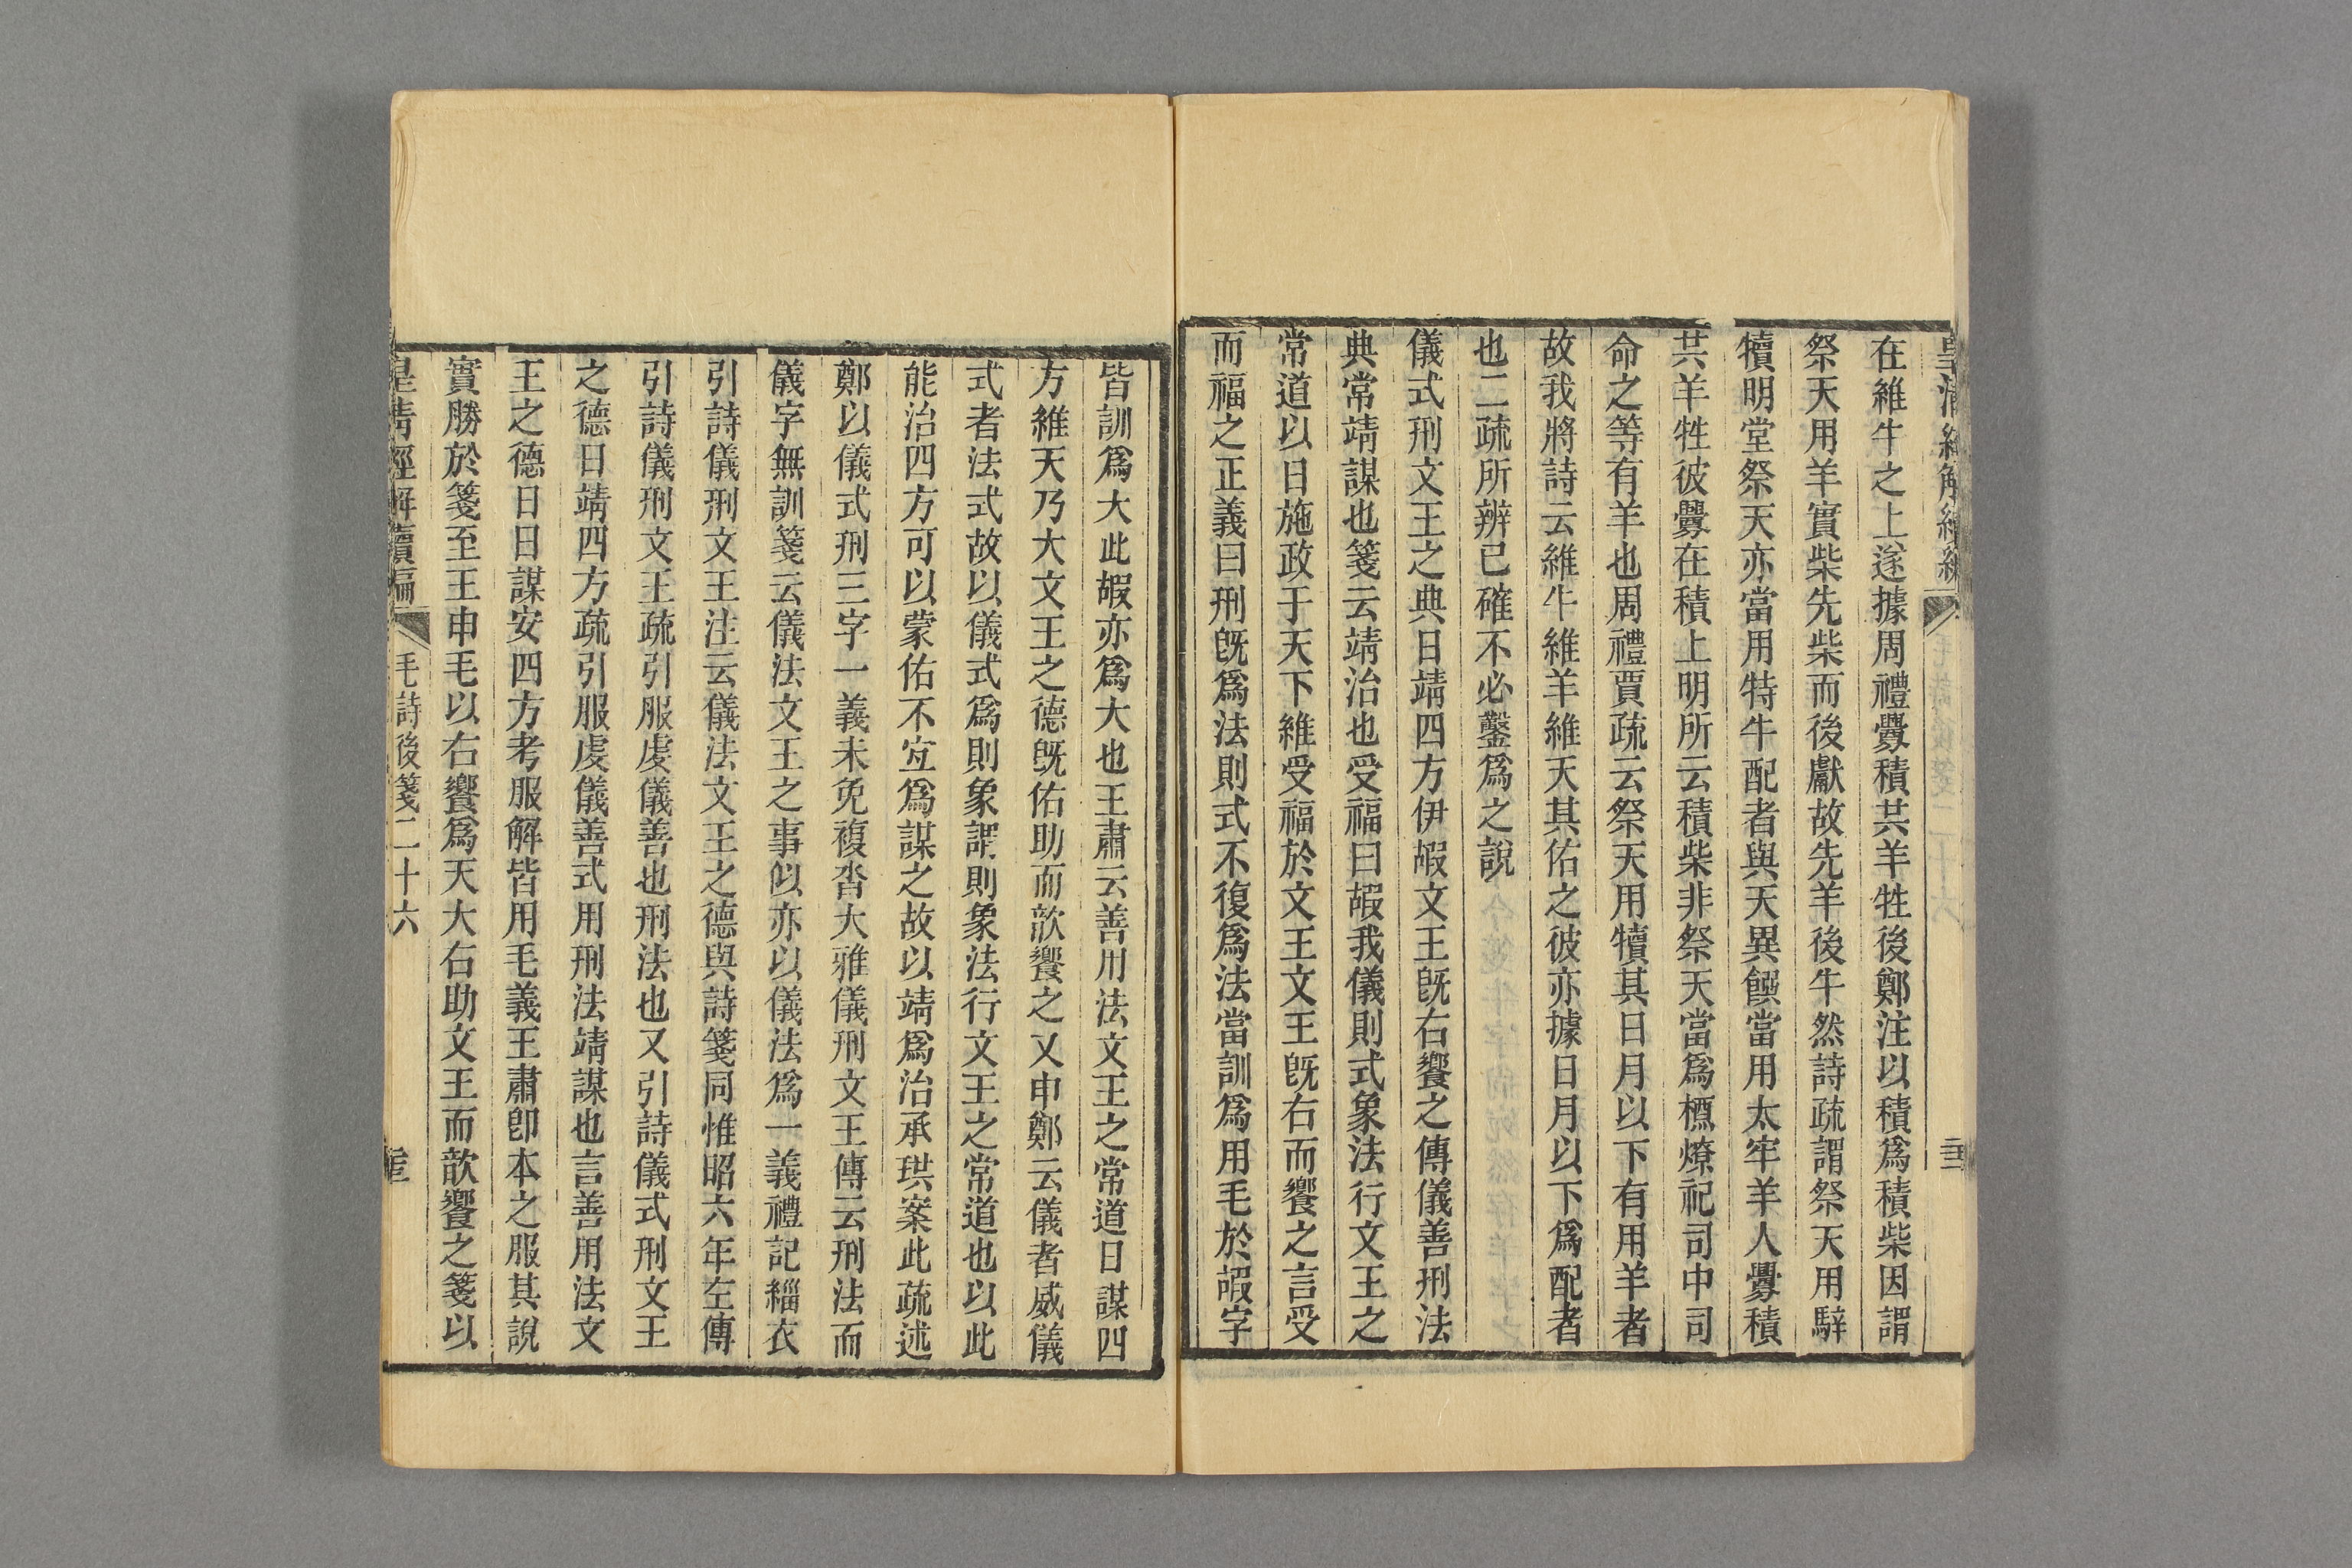 在維牛之上遂據周禮釁積共羊牲後鄭注以積爲積柴因謂
祭天用羊實柴先柴而後獻故先羊後牛然詩疏謂祭天用騂
犢明堂祭天亦當用特牛配者與天異饌當用太牢羊人釁積
共羊牲彼釁在積上明所云積柴非祭天當爲槱燎祀司中司
命之等有羊也周禮賈疏云祭天用犢其日月以下有用羊者
故我將詩云維牛維羊維天其佑之彼亦據日月以下爲配者
也二疏所辨已確不必鑿爲之說
儀式刑文王之典日靖四方伊嘏文王既右饗之傳儀善刑法
典常靖謀也箋云靖治也受福曰嘏我儀則式象法行文王之
常道以日施政于天下維受福於文王文王既右而饗之言受
而福之正義曰刑旣爲法則式不復爲法當訓爲用毛於嘏字
皆訓爲大此嘏亦爲大也王肅云善用法文王之常道日謀四
方維天乃大文王之德旣佑助而歆饗之又申鄭云儀者威儀
式者法式故以儀式爲則象謂則象法行文王之常道也以此
能治四方可以蒙佑不宐爲謀之故以靖爲治承珙案此疏述
鄭以儀式刑三字一義未免複沓大雅儀刑文王傳云刑法而
儀字無訓箋云儀法文王之事似亦以儀法爲一義禮記緇衣
引詩儀刑文王注云儀法文王之德與詩箋同惟昭六年左傳
引詩儀刑文王疏引服虔儀善也刑法也又引詩儀式刑文王
之德日靖四方疏引服虔儀善式用刑法靖謀也言善用法文
王之德日日謀安四方考服解皆用毛義王肅卽本之服其說
實勝於箋至王申毛以右饗爲天大右助文王而歆饗之箋以
皇清經解續編
毛詩後箋二十六